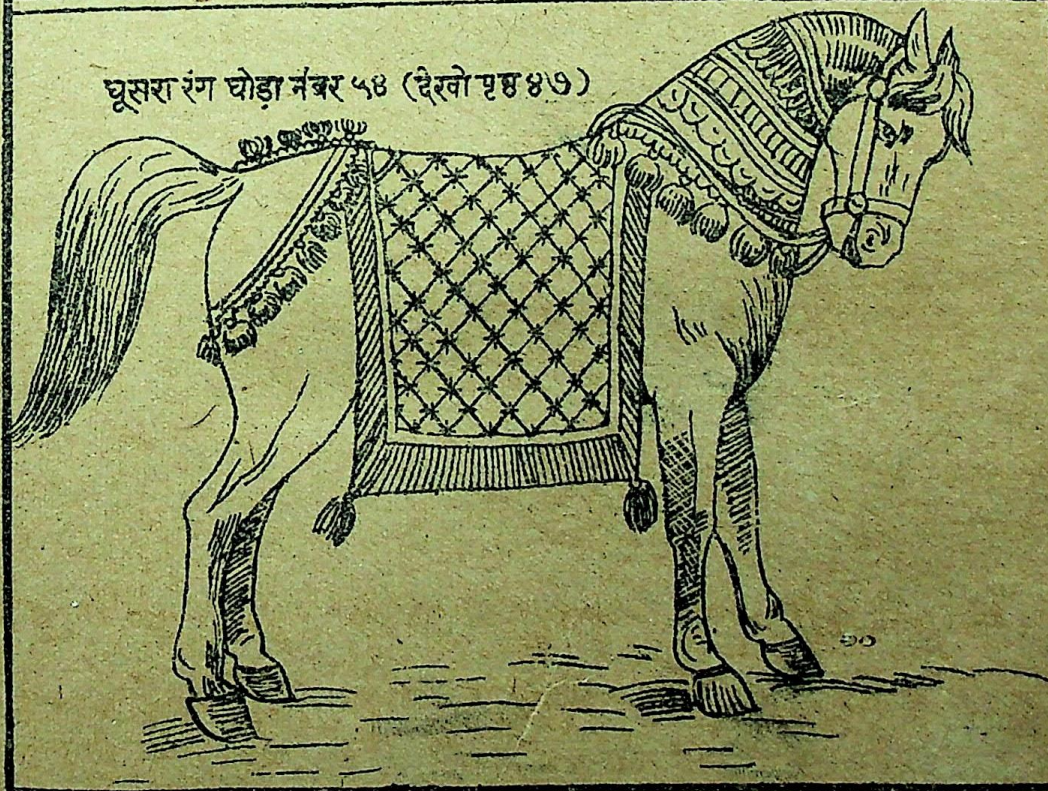 घूसरा रंग घोड़ा नंबर ५४ (देखो पृष्ठ ४७)